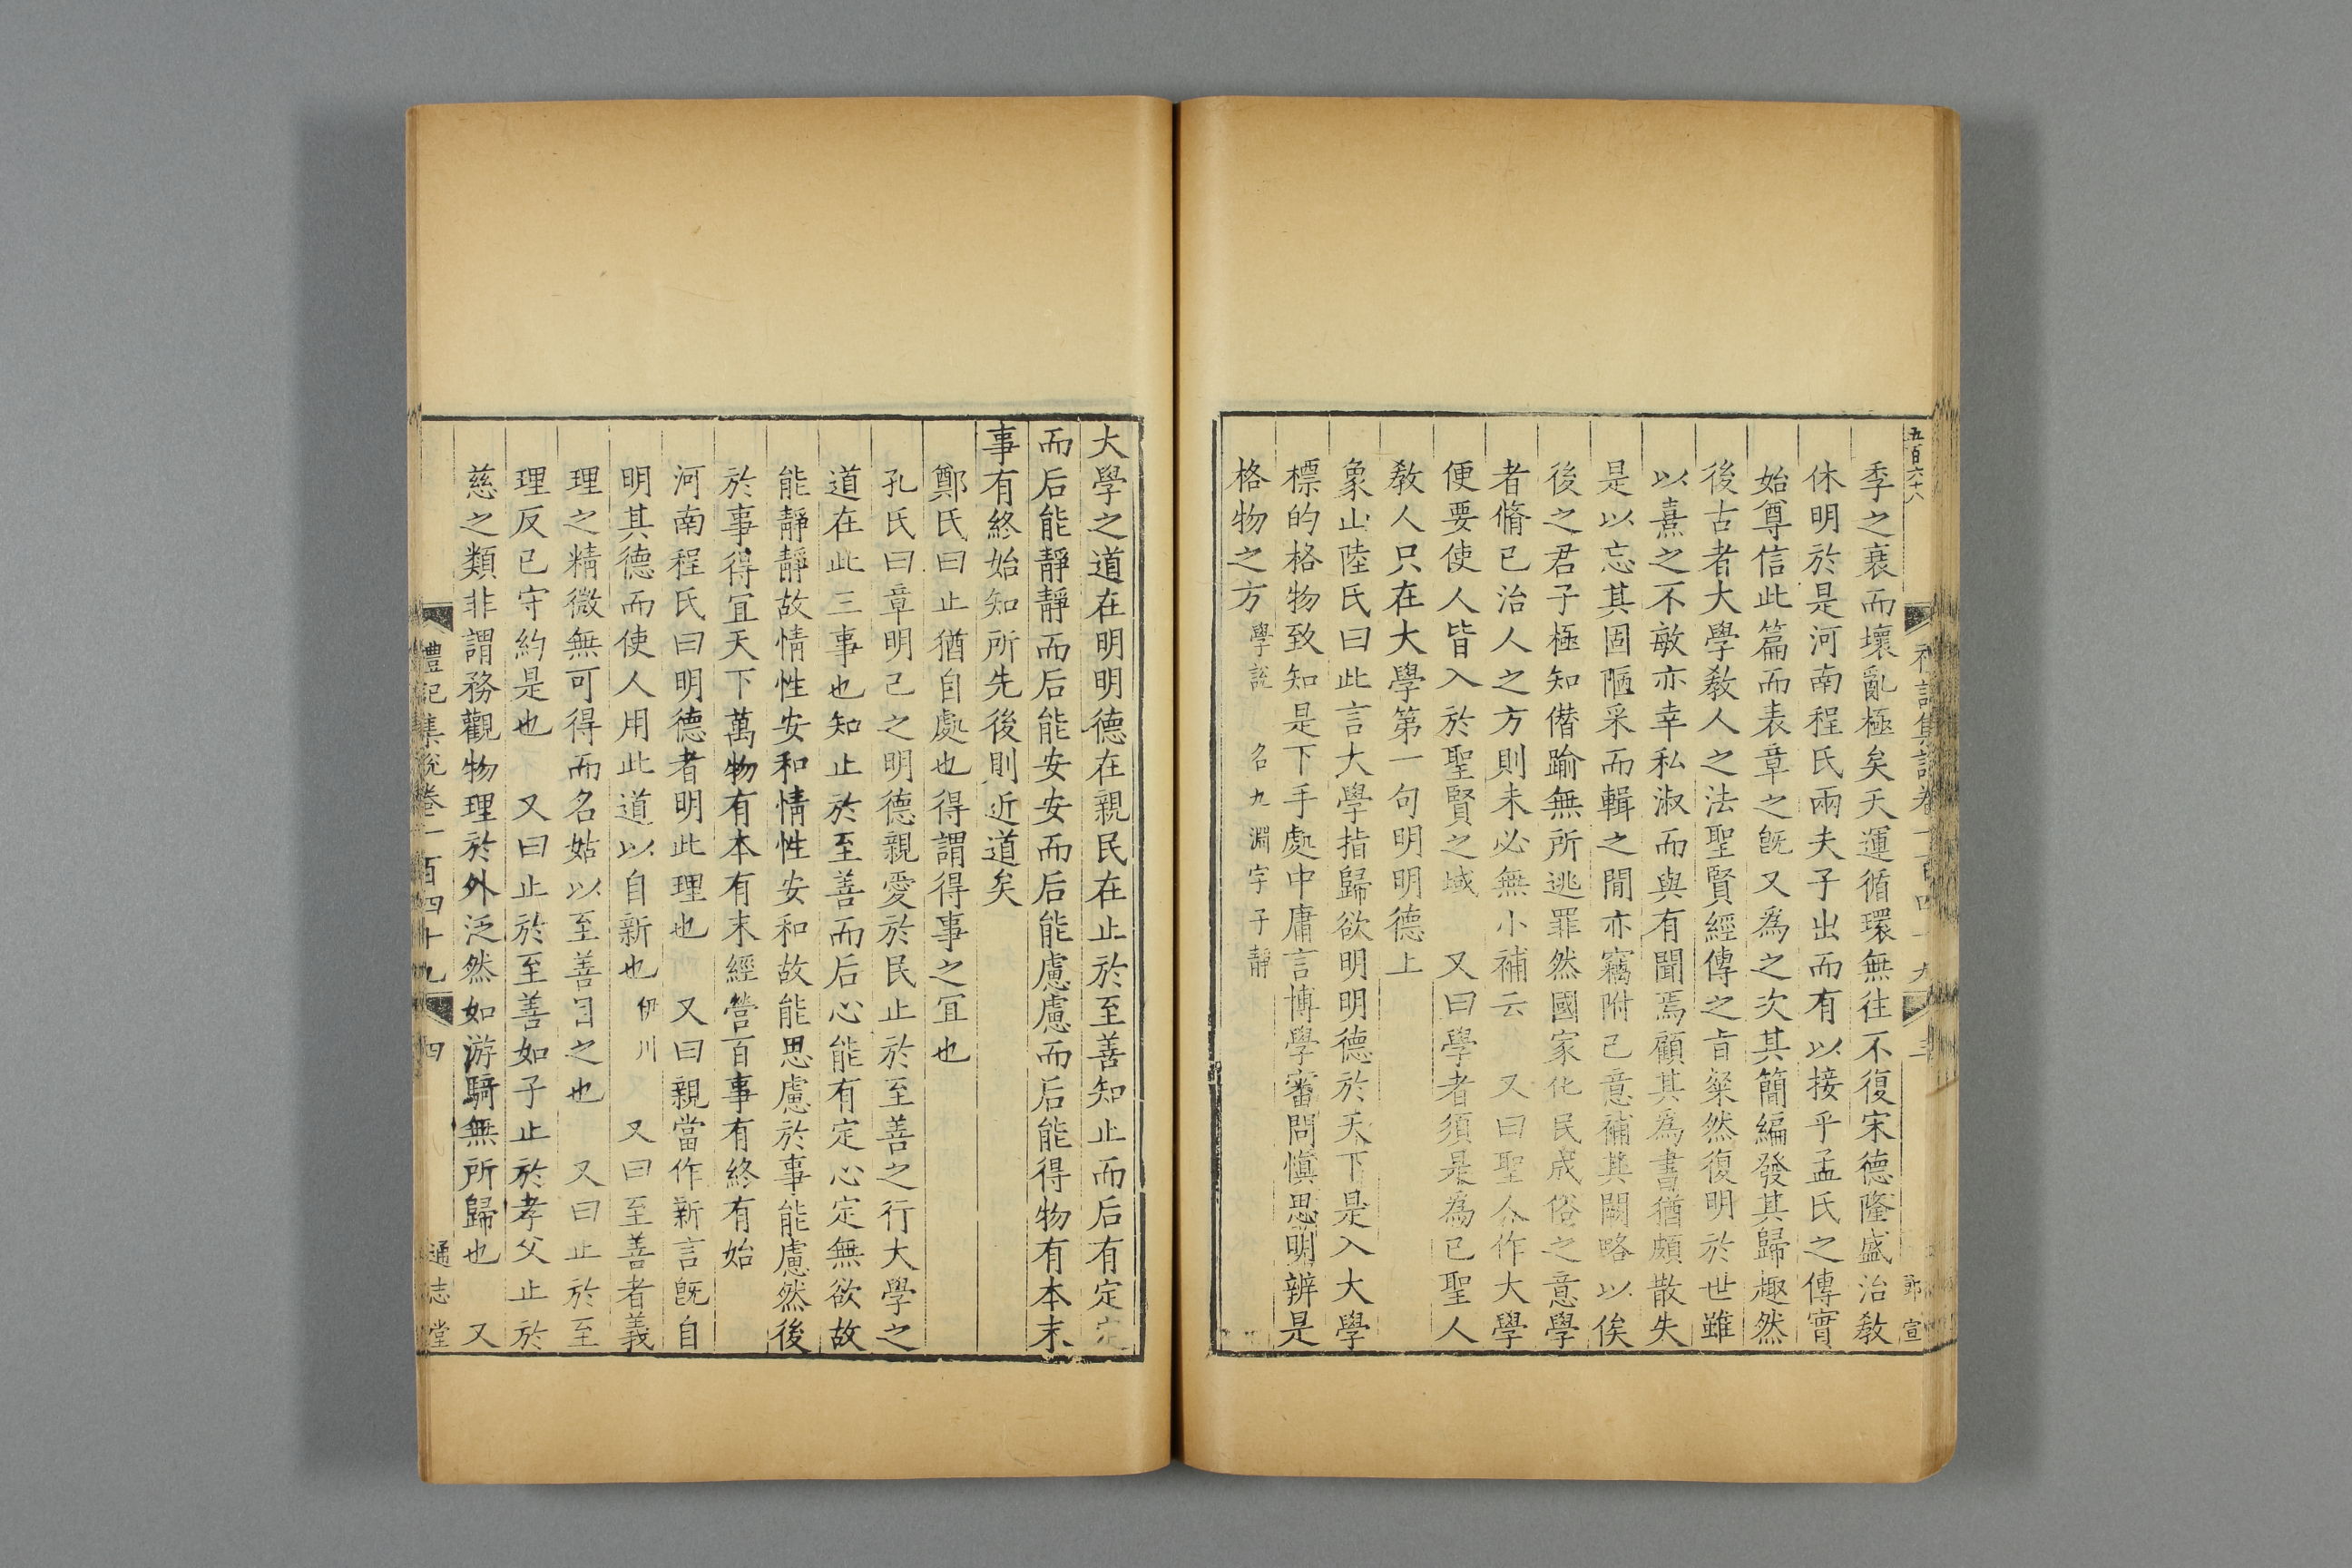 五百六十八
鄧宣
季之衰而壞亂極矣天運循環無往不復宋德隆盛治敎
休明於是河南程氏兩夫子出而有以接乎孟氏之傳實
始尊信此篇而表章之旣又爲之次其簡編發其歸趣然
後古者大學敎人之法聖賢經傳之旨粲然復明於世雖
以熹之不敏亦幸私淑而與有聞焉顧其爲書猶頗散失
是以忘其固陋采而輯之閒亦竊附己意補其闕略以俟
後之君子極知僭踰無所逃罪然國家化民成俗之意學
者脩已治人之方則未必無小補云　又曰聖人作大學
便要使人皆入於聖賢之域　又曰學者須是爲已聖人
敎人只在大學第一句明明德上
象山陸氏曰此言大學指歸欲明明德於天下是入大學
標的格物致知是下手處中庸言博學審問愼思明辨是
格物之方學說　名九淵字子靜
大學之道在明明德在親民在止於至善知止而后有定定
而后能靜靜而后能安安而后能慮慮而后能得物有本末
事有終始知所先後則近道矣
鄭氏曰止猶自處也得謂得事之宜也
孔氏曰章明己之明德親愛於民止於至善之行大學之
道在此三事也知止於至善而后心能有定心定無欲故
能靜靜故情性安和情性安和故能思慮於事能慮然後
於事得宜天下萬物有本有末經營百事有終有始
河南程氏曰明德者明此理也　又曰親當作新言旣自
明其德而使人用此道以自新也伊川　又曰至善者義
理之精微無可得而名姑以至善目之也　又曰止於至
理反已守約是也　又曰止於至善如子止於孝父止於
慈之類非謂務觀物理於外泛然如游騎無所歸也　又
禮記集說卷一百四十九　四　通志堂